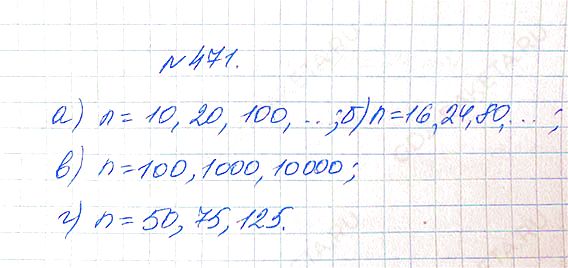 №471.
а) n = 10, 20, 100, ...; б) n = 16, 24, 80, ...;
в) n = 100, 1000, 10000;
г) n = 50, 75, 125.